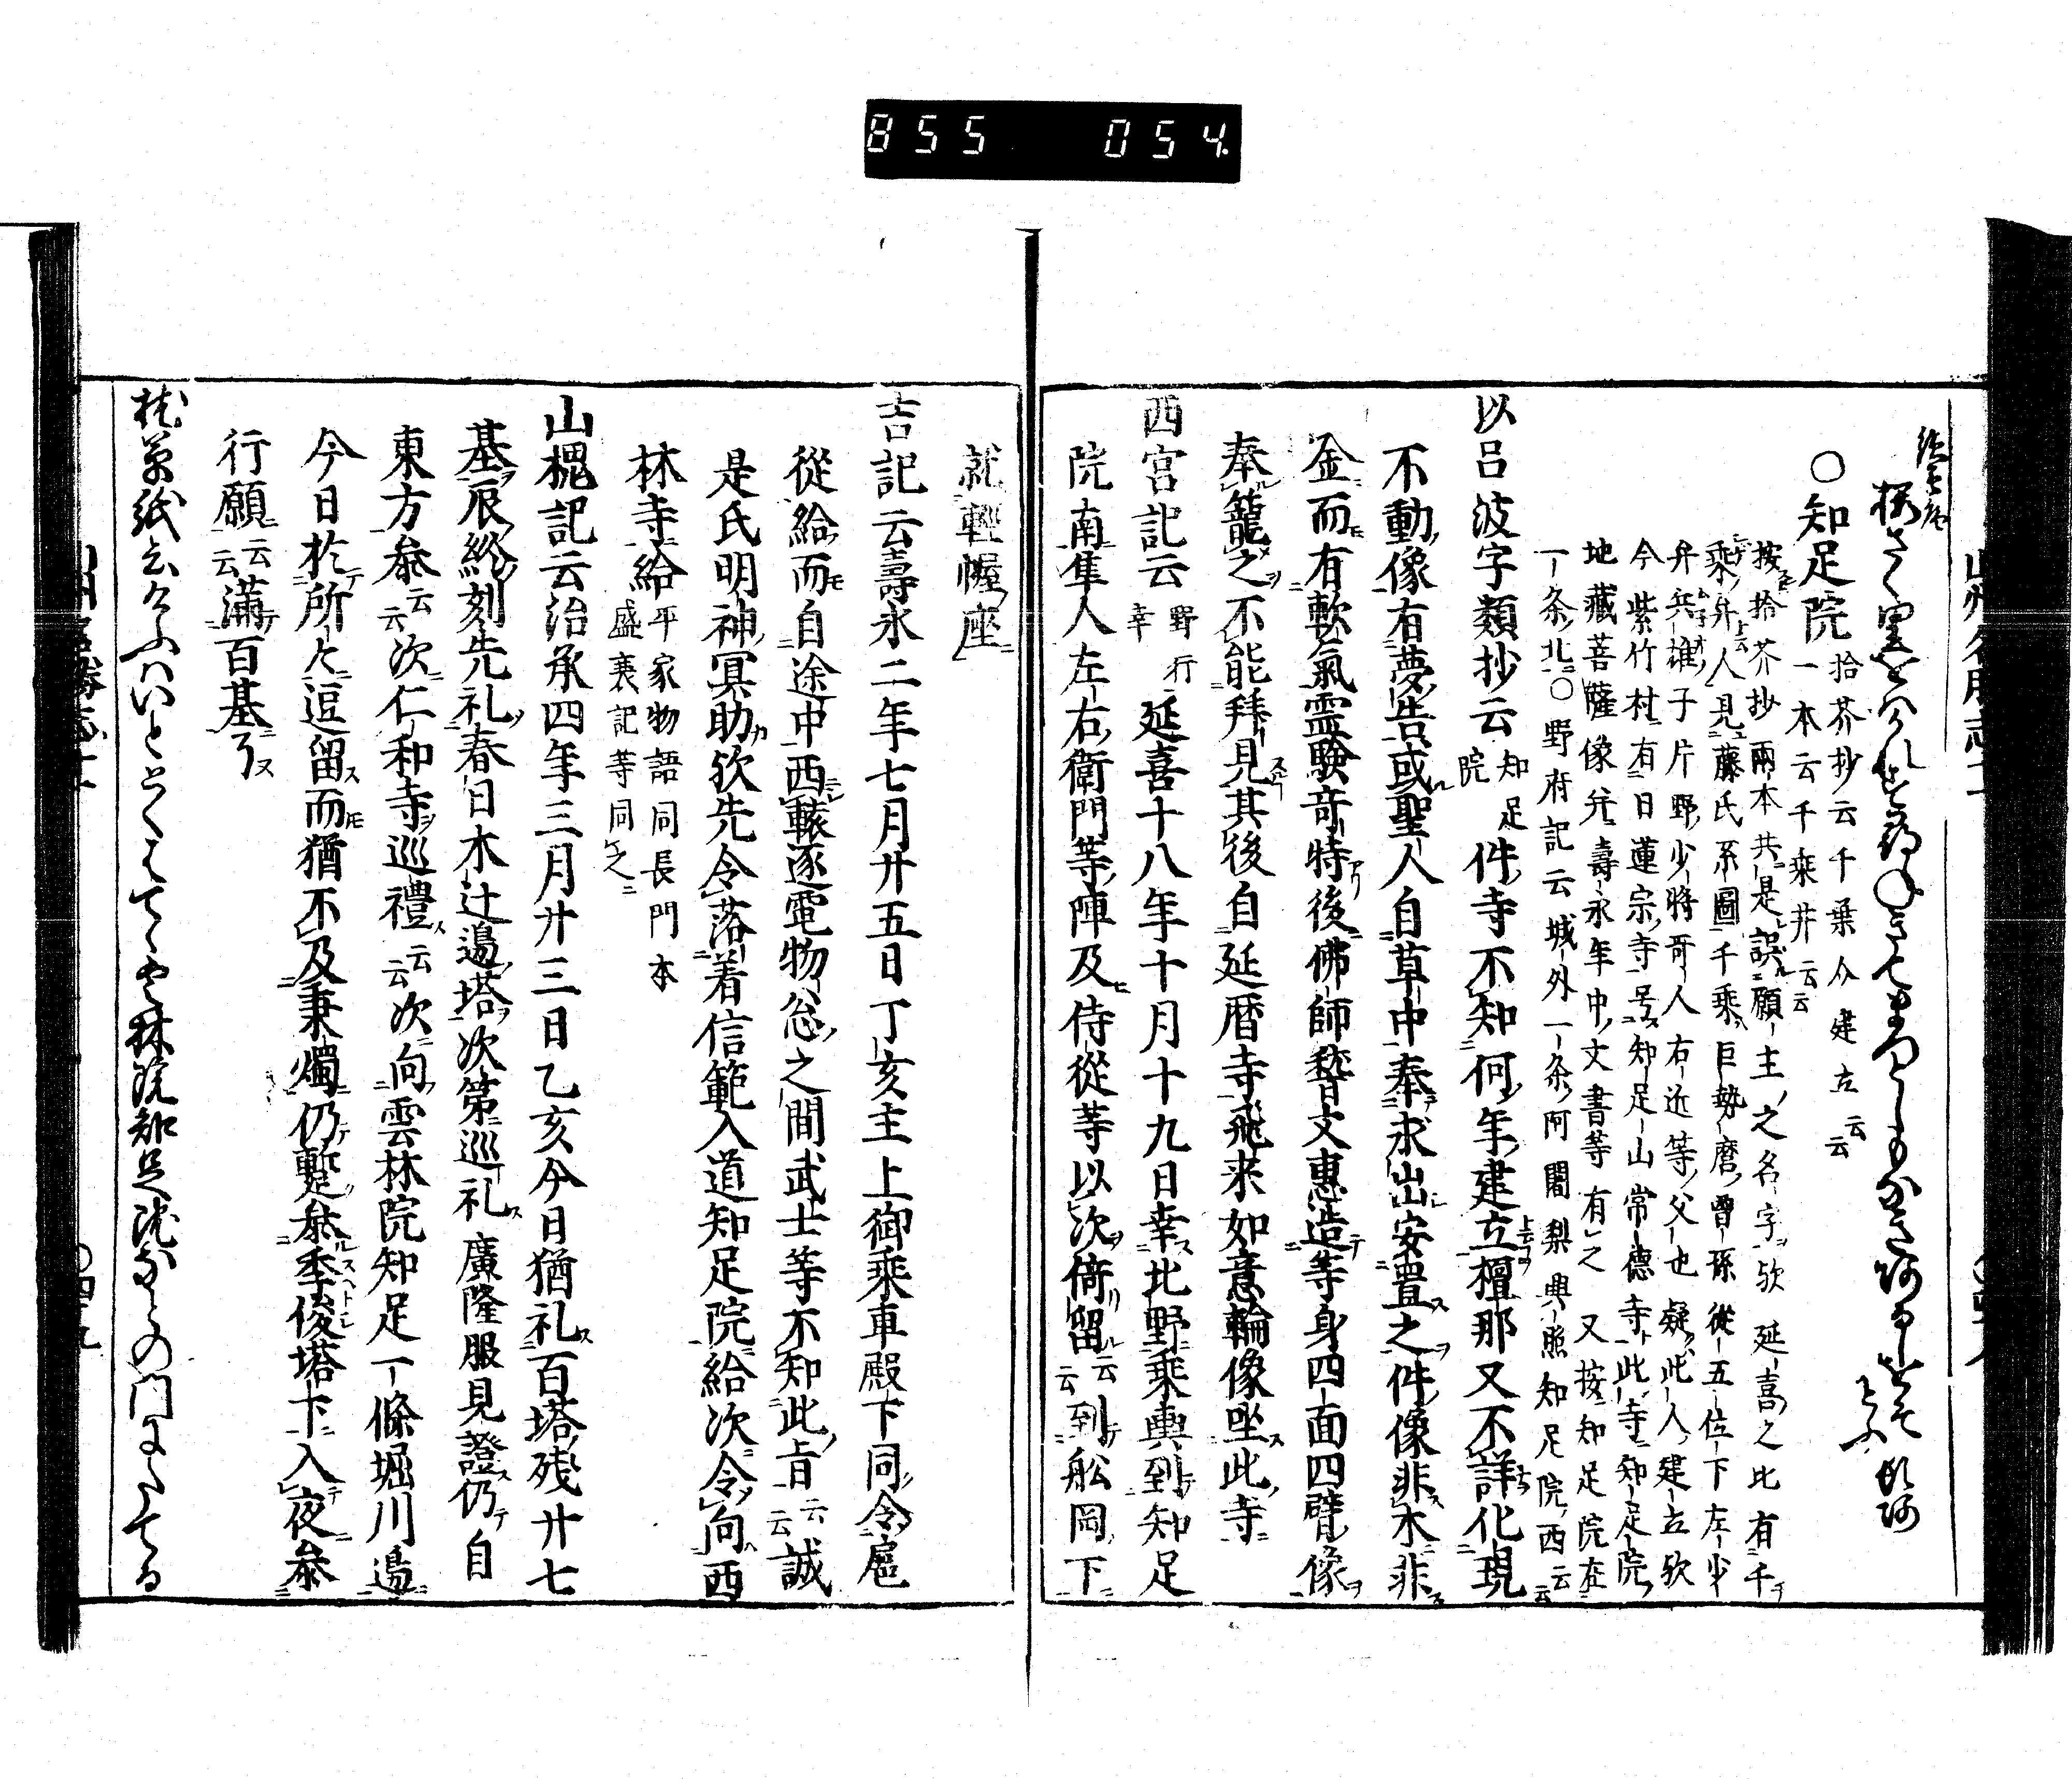 855 054
〇知足院
拾芥抄云千乗介建立云云
一本云千乗井云云
按拾芥抄兩本共是誤願主之名字歟延喜之比有千
乗弁人見藤氏系圖千乗巨勢麿曽孫從五位下左少
弁兵雄子片野少將哥人右近等父也疑此人建立歟
今紫竹村有日蓮宗寺号知足山常德寺此寺知足院
地藏菩薩像并壽永年中文書等有之又按知足院在
一条北〇野府記云城外一条阿闍梨興照知足院西云云
以呂波字類抄云知足院件寺不知何年建立檀那又不詳化現
不動像右夢告或聖人自草中奉求出安置之件像非木非
金而有軟氣霊驗竒特後佛師瞀文惠造等身四面四臂像
奉籠之不能拜見其後自延暦寺飛来如意輪像坐此寺
西宮記云野行幸延喜十八年十月十九日幸北野乘輿到知足
院南隼人左右衛門等陣及侍從等以次倚留云云到舩岡下
就輕幄座
吉記云壽永二年七月廿五日丁亥主上御乘車殿下同令扈
從給而自途中西轅逐電物忩之間武士等不知此旨云云誠
是氏明神冥助歟先令落着信範入道知足院給次令向西
林寺給平家物語同長門本盛衰記等同之
山槐記云治承四年三月廿三日乙亥今日猶礼百塔残廿七
基辰終刻先礼春日木辻邉塔次第巡礼廣隆服見證仍自
東方叅云云次仁和寺巡禮云云次向雲林院知足一條堀川邉
今日於所々逗留而猶不及秉燭仍蹔叅季俊塔下入夜叅
行願云云滿百基了
枕草紙云けふハいととくはてゝ雲林院知足院などの門にたてる